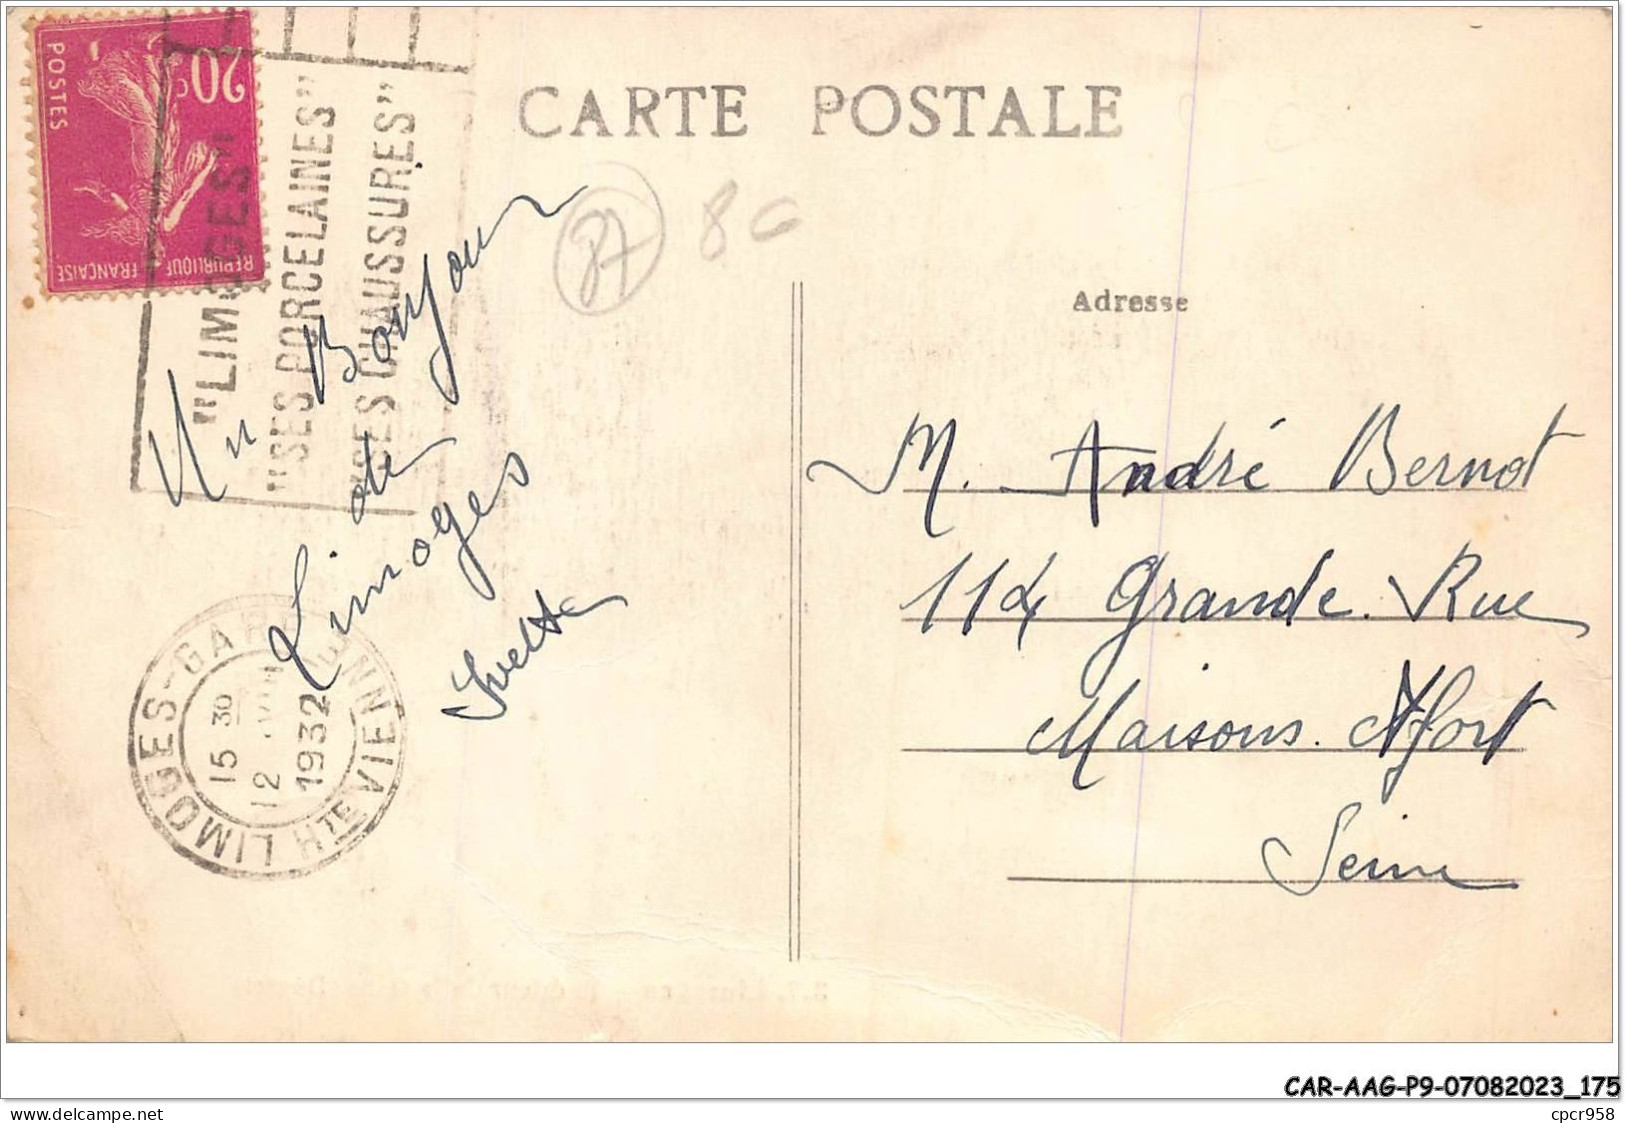 CARTE POSTALE
POSTES
20c
REPUBLIQUE FRANÇAISE
"LIMOGES"
"SES PORCELAINES"
"SES CHAUSSURES"
87
Un Bonjour
de
Limoges
Yvette
LIMOGES-GARE
HTE VIENNE
15 30
12
1932
Adresse
M. André Bernot
114 Grande Rue
Maisons Alfort
Seine
CAR-AAG-P9-07082023_175
https://www.delcampe.net
cpcr958